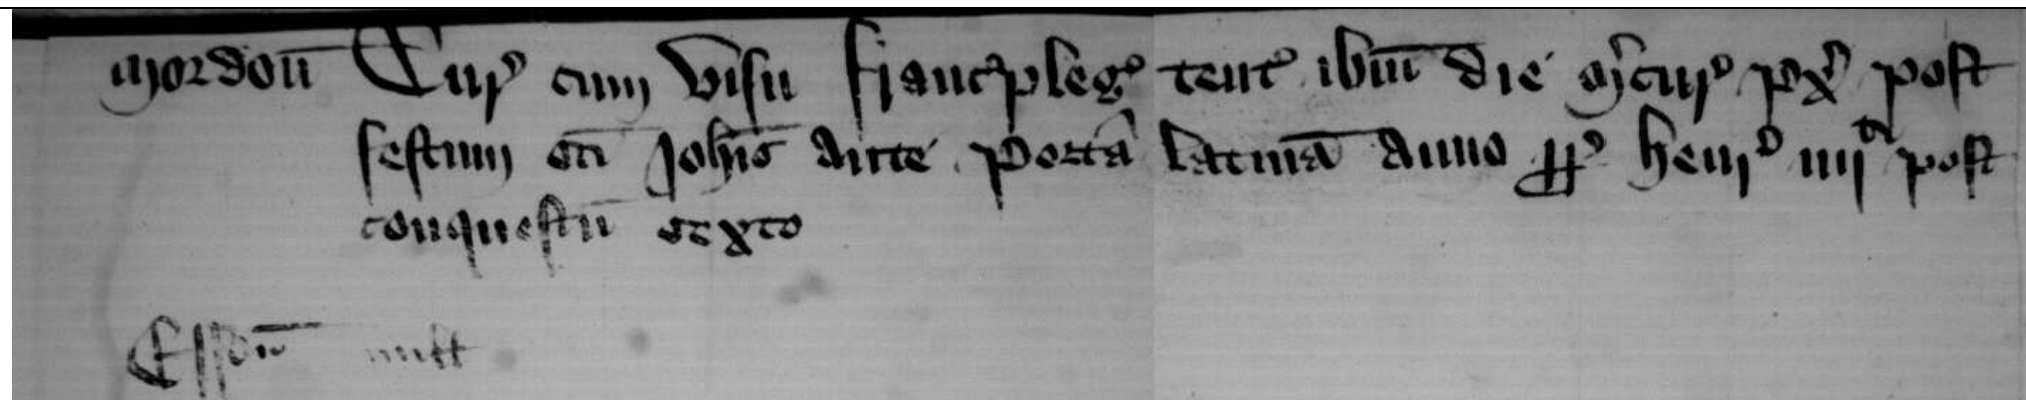 Mordon̄ Cur' cum visu Franc'pleg' tent' ib̄m die M̄cur' p̱x' post
festum sc̄i Joh̄is ante portā latinā anno RR' Henr' iiijti post
conquestū sexto
Esson̄ null